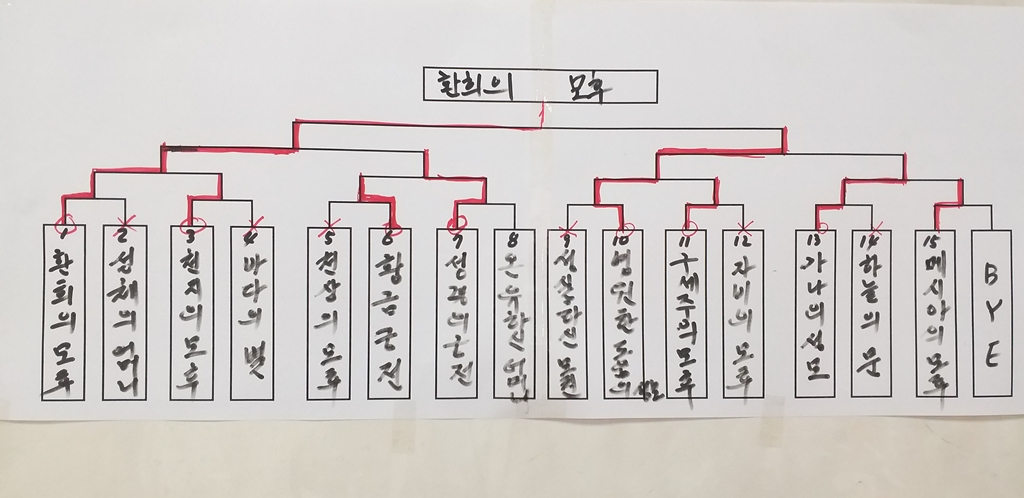 환희의 모후
1 환희의 모후
2 성체의 어머니
3 천지의 모후
4 바다의 별
5 천상의 모후
6 황금궁전
7 성령의 궁전
8 온유하신 어머니
9
10 영원한 도움의 성모
11 구세주의 모후
12 자비의 모후
13 가나의 성모
14 하늘의 문
15 메시아의 모후
BYE